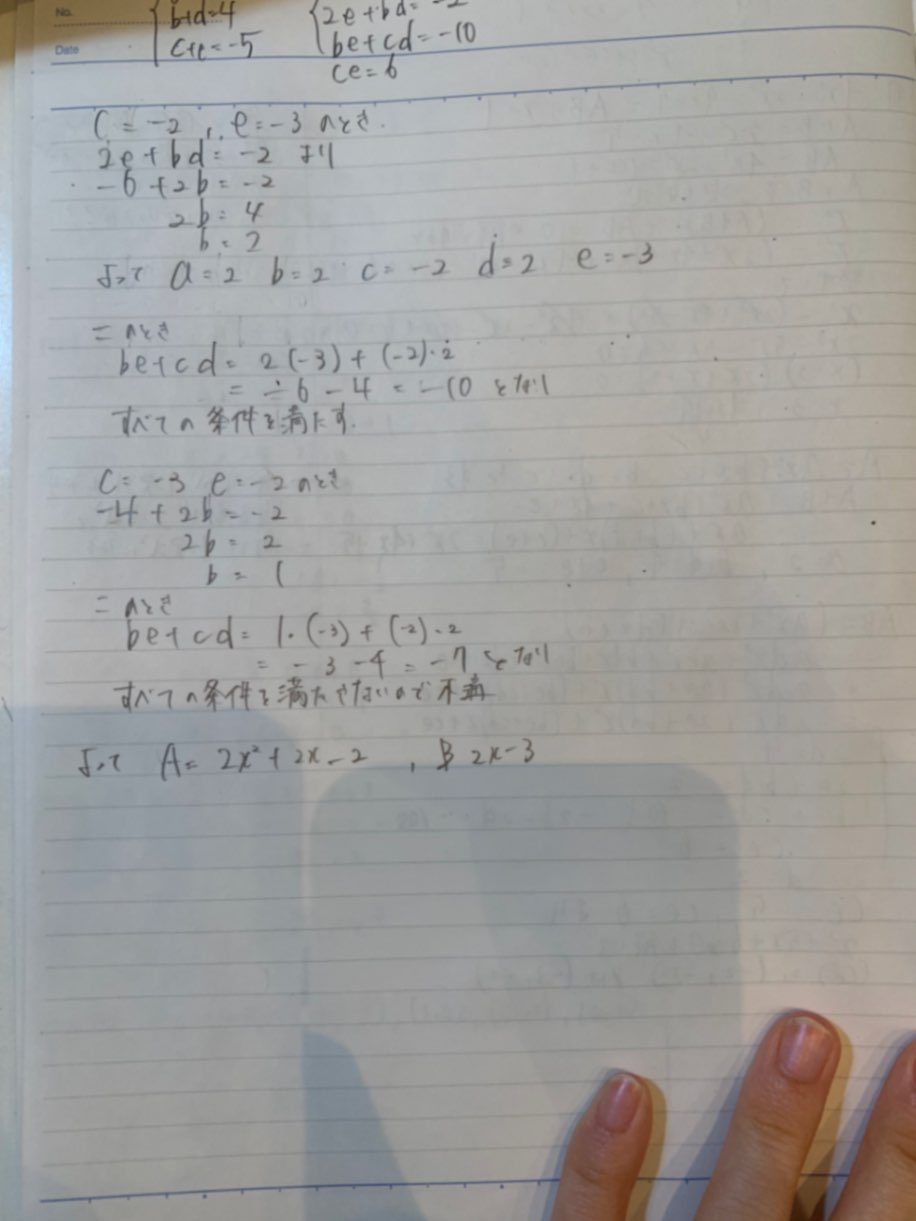 No.
Date
b+d=4
c+e=-5
2e+bd=-2
be+cd=-10
ce=6
C=-2, e=-3 のとき.
2e+bd=-2 より
-6+2b=-2
2b=4
b=2
よって a=2 b=2 c=-2 d=2 e=-3
このとき
be+cd= 2(-3)+(-2)・2
= -6-4=-10 となり
すべての条件を満たす.
C=-3 e=-2のとき
-4+2b=-2
2b=2
b=1
このとき
be+cd= 1・(-3)+(-2)・2
= -3-4=-7 となり
すべての条件を満たさないので不適
よって A=2x²+2x-2 , B 2x-3